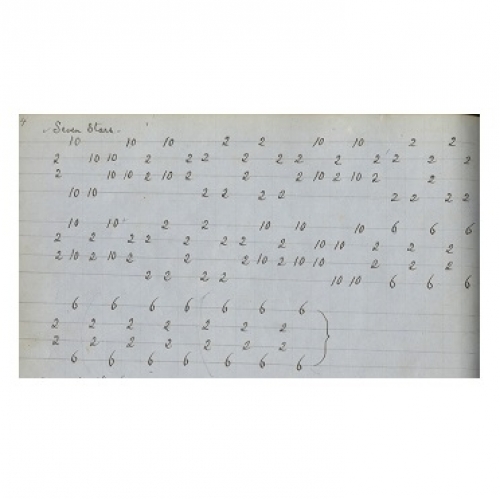 Seven Stars.
10 10 10 2 2 10 10 2 2
2 10 10 2 2 2 2 2 2 2 2 2 2 2 2
2 10 10 2 10 2 2 2 10 2 10 2 2
10 10 2 2 2 2 2 2 2 2
10 10 2 2 10 10 10 6 6 6
2 2 2 2 2 2 2 2 2 10 10 2 2 2
2 10 2 10 2 2 2 10 2 10 10 2 2 2
2 2 2 2 10 10 6 6 6 6
6 6 6 6 6 6 6
2 2 2 2 2 2 2
2 2 2 2 2 2 2
6 6 6 6 6 6 6